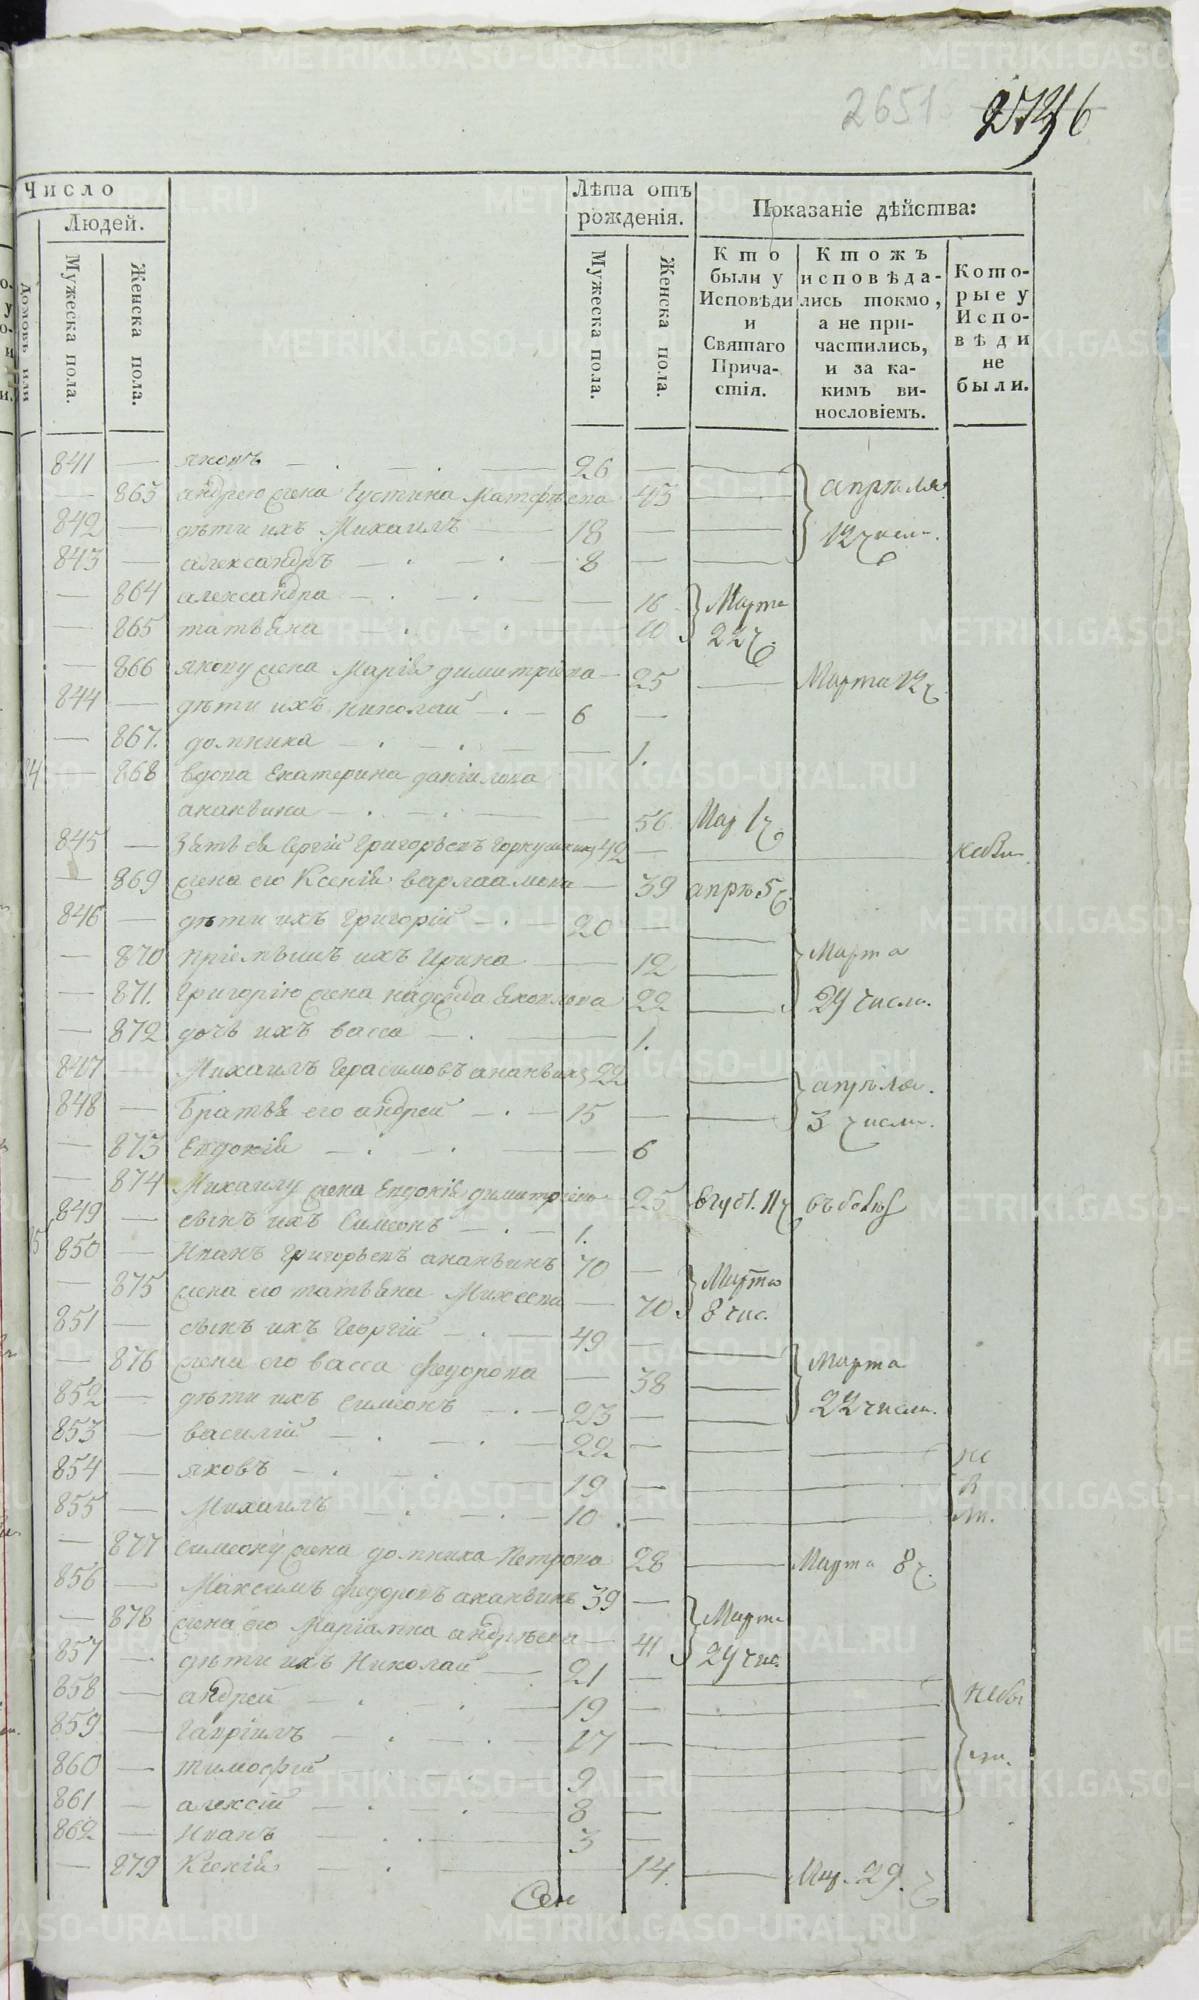 2651
2736
Число
Людей.
Домовъ или
Мужеска пола.
Женска пола.
Лѣта отъ рожденія.
Мужеска пола.
Женска пола.
Показаніе дѣйства:
Кто были у Исповѣди и Святаго Причастія.
Ктожъ исповѣдались токмо, а не причастились, и за какимъ винословіемъ.
Которые у Исповѣди не были.
841 — яковъ — 26 —
— 863 андрею жена Іустина Матфѣева 45 апрѣля
842 — дѣти ихъ Михаилъ — 18 — 12 числ.
843 — александръ — 8 —
— 864 александра — 16 Марта
— 865 татьяна — 10 22 ч.
— 866 якову жена Марія димитріева — 25 — Марта 12 ч
844 — дѣти ихъ николай — 6 —
— 867. домника — 1.
— 868 вдова Екатерина даніилова
ананьина — 56 Мар 1 ч
845 — Зять ея Сергій Григорьевъ 42 —
— 869 жена его Ксенія варлаамова — 39 апрѣ 5 ч.
846 — дѣти ихъ григорій — 20 —
— 870 пріемышъ ихъ Ирина — 12 Марта
— 871. Григорію жена надежда 22 29 числ.
— 872 дочь ихъ васса — 1.
847 — Михаилъ Герасимовъ ананьинъ 22 апрѣля.
848 — Братья его андрей — 15 — 3 числ.
— 873 Евдокія — 6
— 874 Михаилу жена Евдокія димитріева 25
849 — сынъ ихъ Симеонъ — 1.
15 850 — Иванъ Григорьевъ ананьинъ 70 — Марта
— 875 жена его татьяна Михеева — 70 8 чис.
851 — сынъ ихъ Георгій — 49 —
— 876 жена его васса федорова — 38 Марта
852 — дѣти ихъ Симеонъ — 23 — 22 числ.
853 — василій — 22 —
854 — яковъ — 19 —
855 — Михаилъ — 10 —
— 877 Симеону жена домника Петрова 28 — Марта 8 ч.
856 — Максимъ федоровъ ананьинъ 39 — Марта
— 878 жена его Маріамна андрѣева — 41 29 чис.
857 — дѣти ихъ Николай — 21 —
858 — андрей — 19 — небы
859 — гавріилъ — 17 — ли.
860 — тимофей — 9 —
861 — алексій — 8 —
862 — Иванъ — 3 —
— 879 Ксенія — 14. — Мар. 29. ч
Сен
METRIKI.GASO-URAL.RU